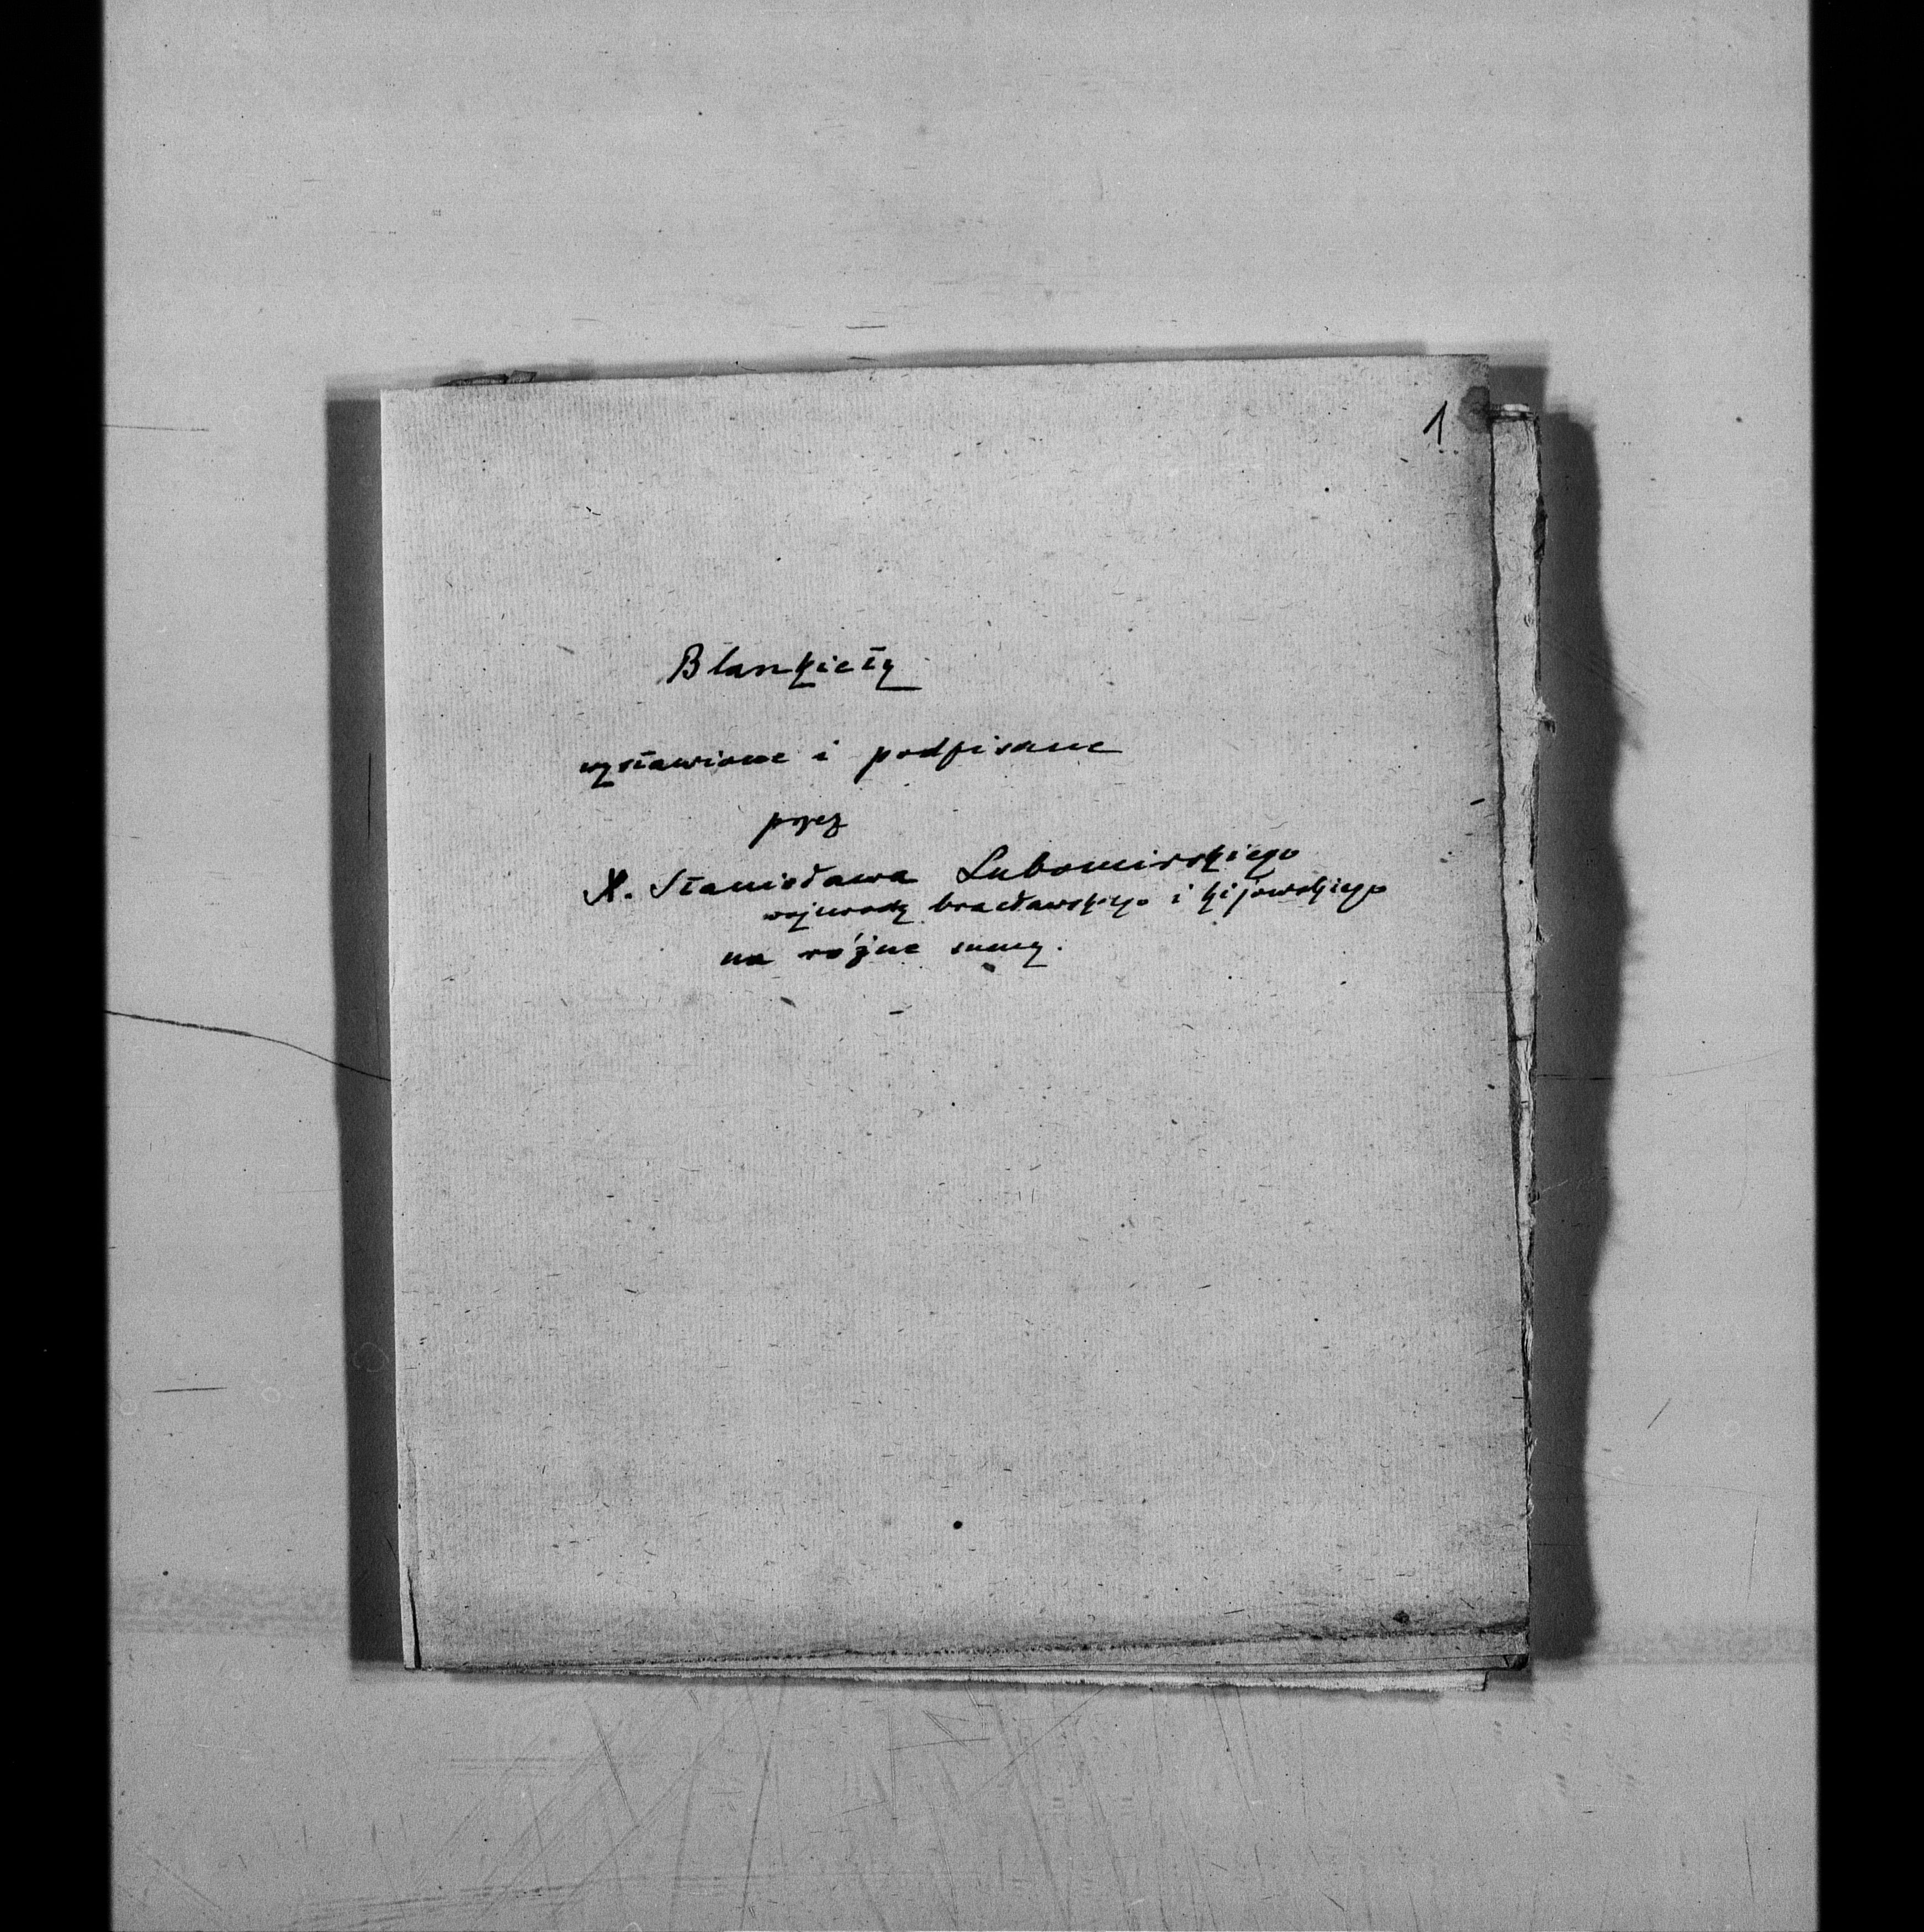 1
Blankiety
wystawione i podpisane
przez
X. Stanisława Lubomirskiego
wojewodę bracławskiego i kijowskiego
na różne sumy.